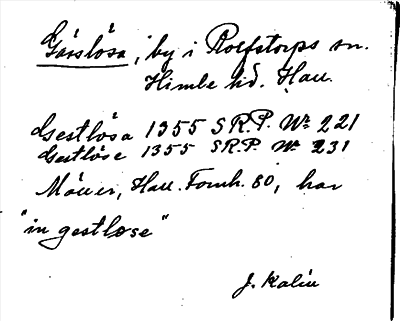 Gässlösa, by i Rolfstorps sn.
Himle hd. Hall.
Gestlösa 1355 S.R.P. Nr 221
Gestlöse 1355 S.R.P. Nr 231
Möller, Hall. Fornh. 80, har
"in gestlose"
J. Kalén